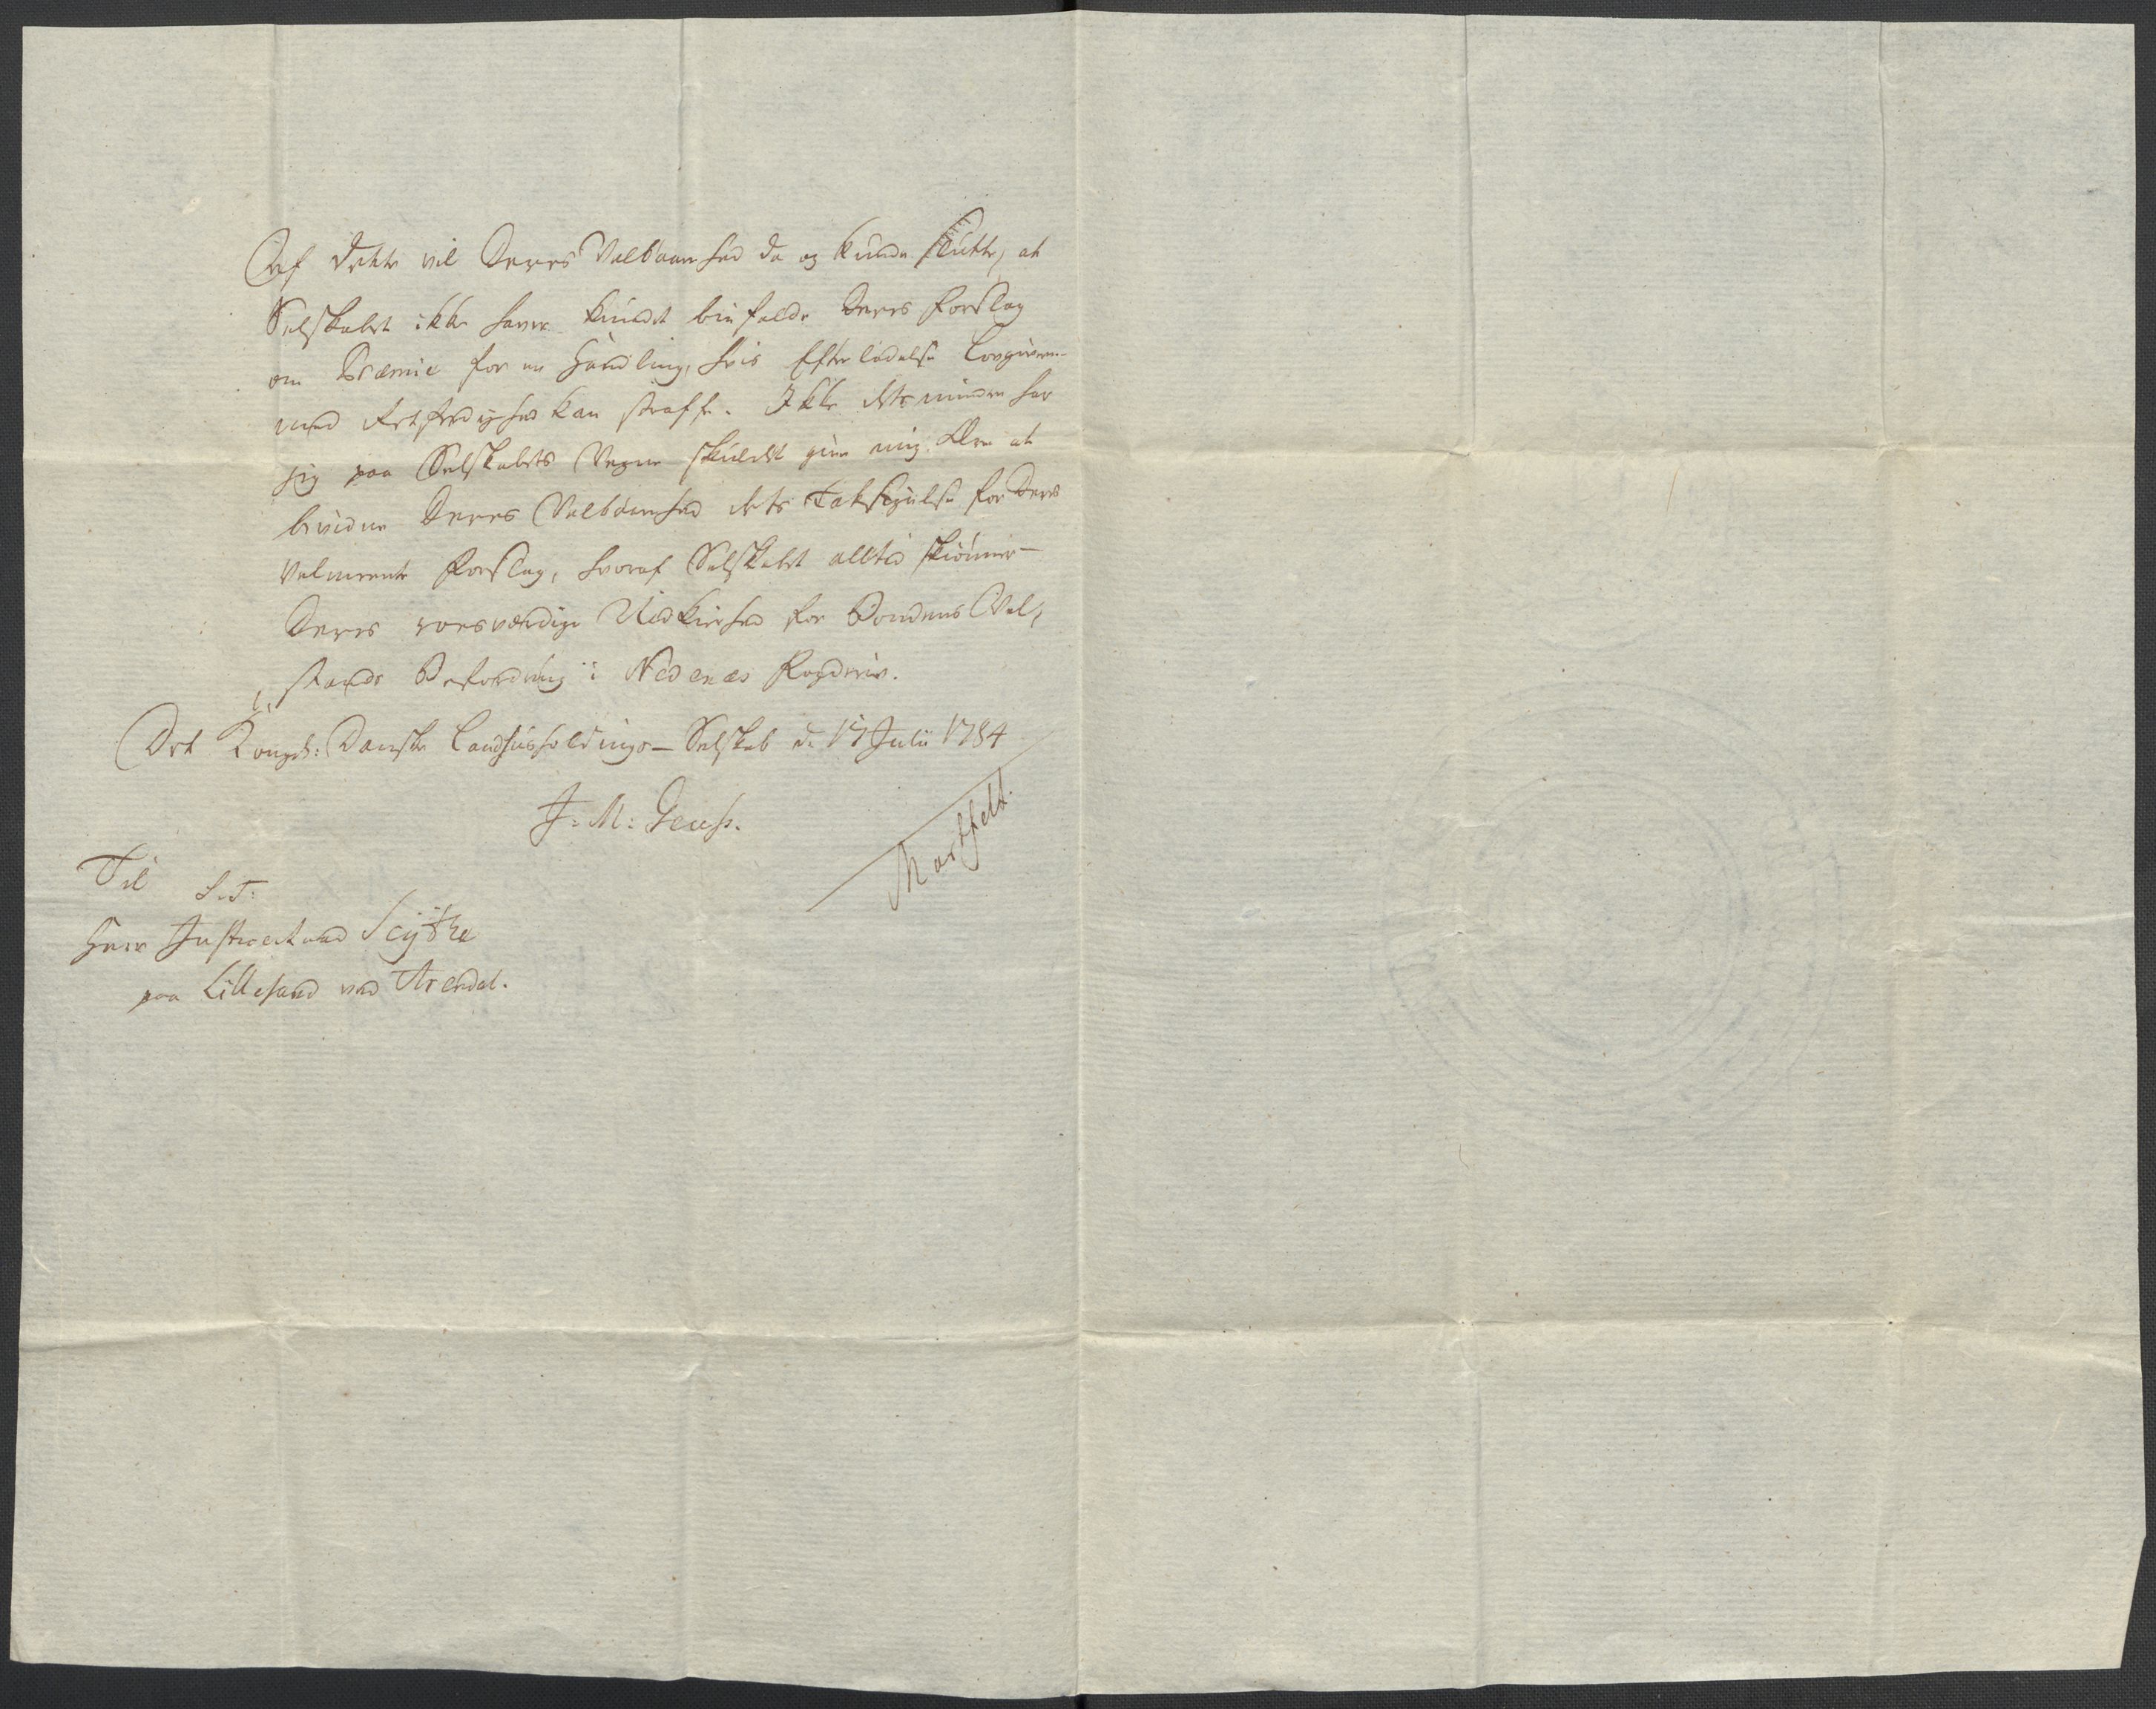 Af dette vil Deres Velbaarenhed da og kunde slutte, at
Selskabet ikke haver kundet biefalde Deres Forslag
om Præmie for en Handling, hvis Efterladelse Lovgiveren
med Retfærdighed kan straffe. Ikke desmindre har
jeg paa Selskabets Vegne skuldet give mig den Ære at
bevidne Deres Velbaarenhed dets Taksigelse for Deres
Velmeente Forslag, hvoraf Selskabet altid skiønner
Deres roesværdige Nidkierhed for Bondens Vel,
stands Befordring i Nedenæs Fogderie.
Det Kongel: Danske Landhuusholdings-Selskab d. 17 Julii 1784
J: M: Geuss.
Martfelt.
Til
S. T:
Herr Justiceraad Scÿthe
paa Lillesand ved Arendal.